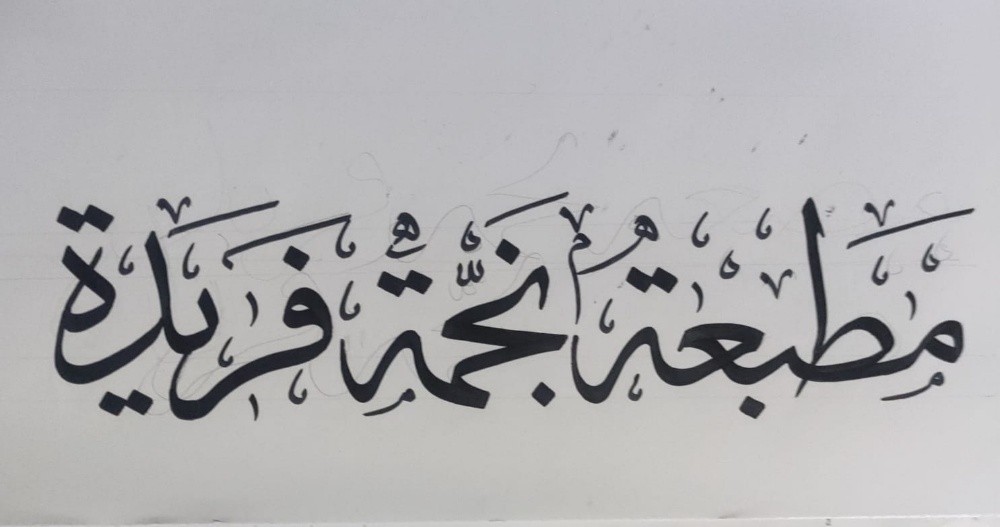 مطبعة نجمة فريدة